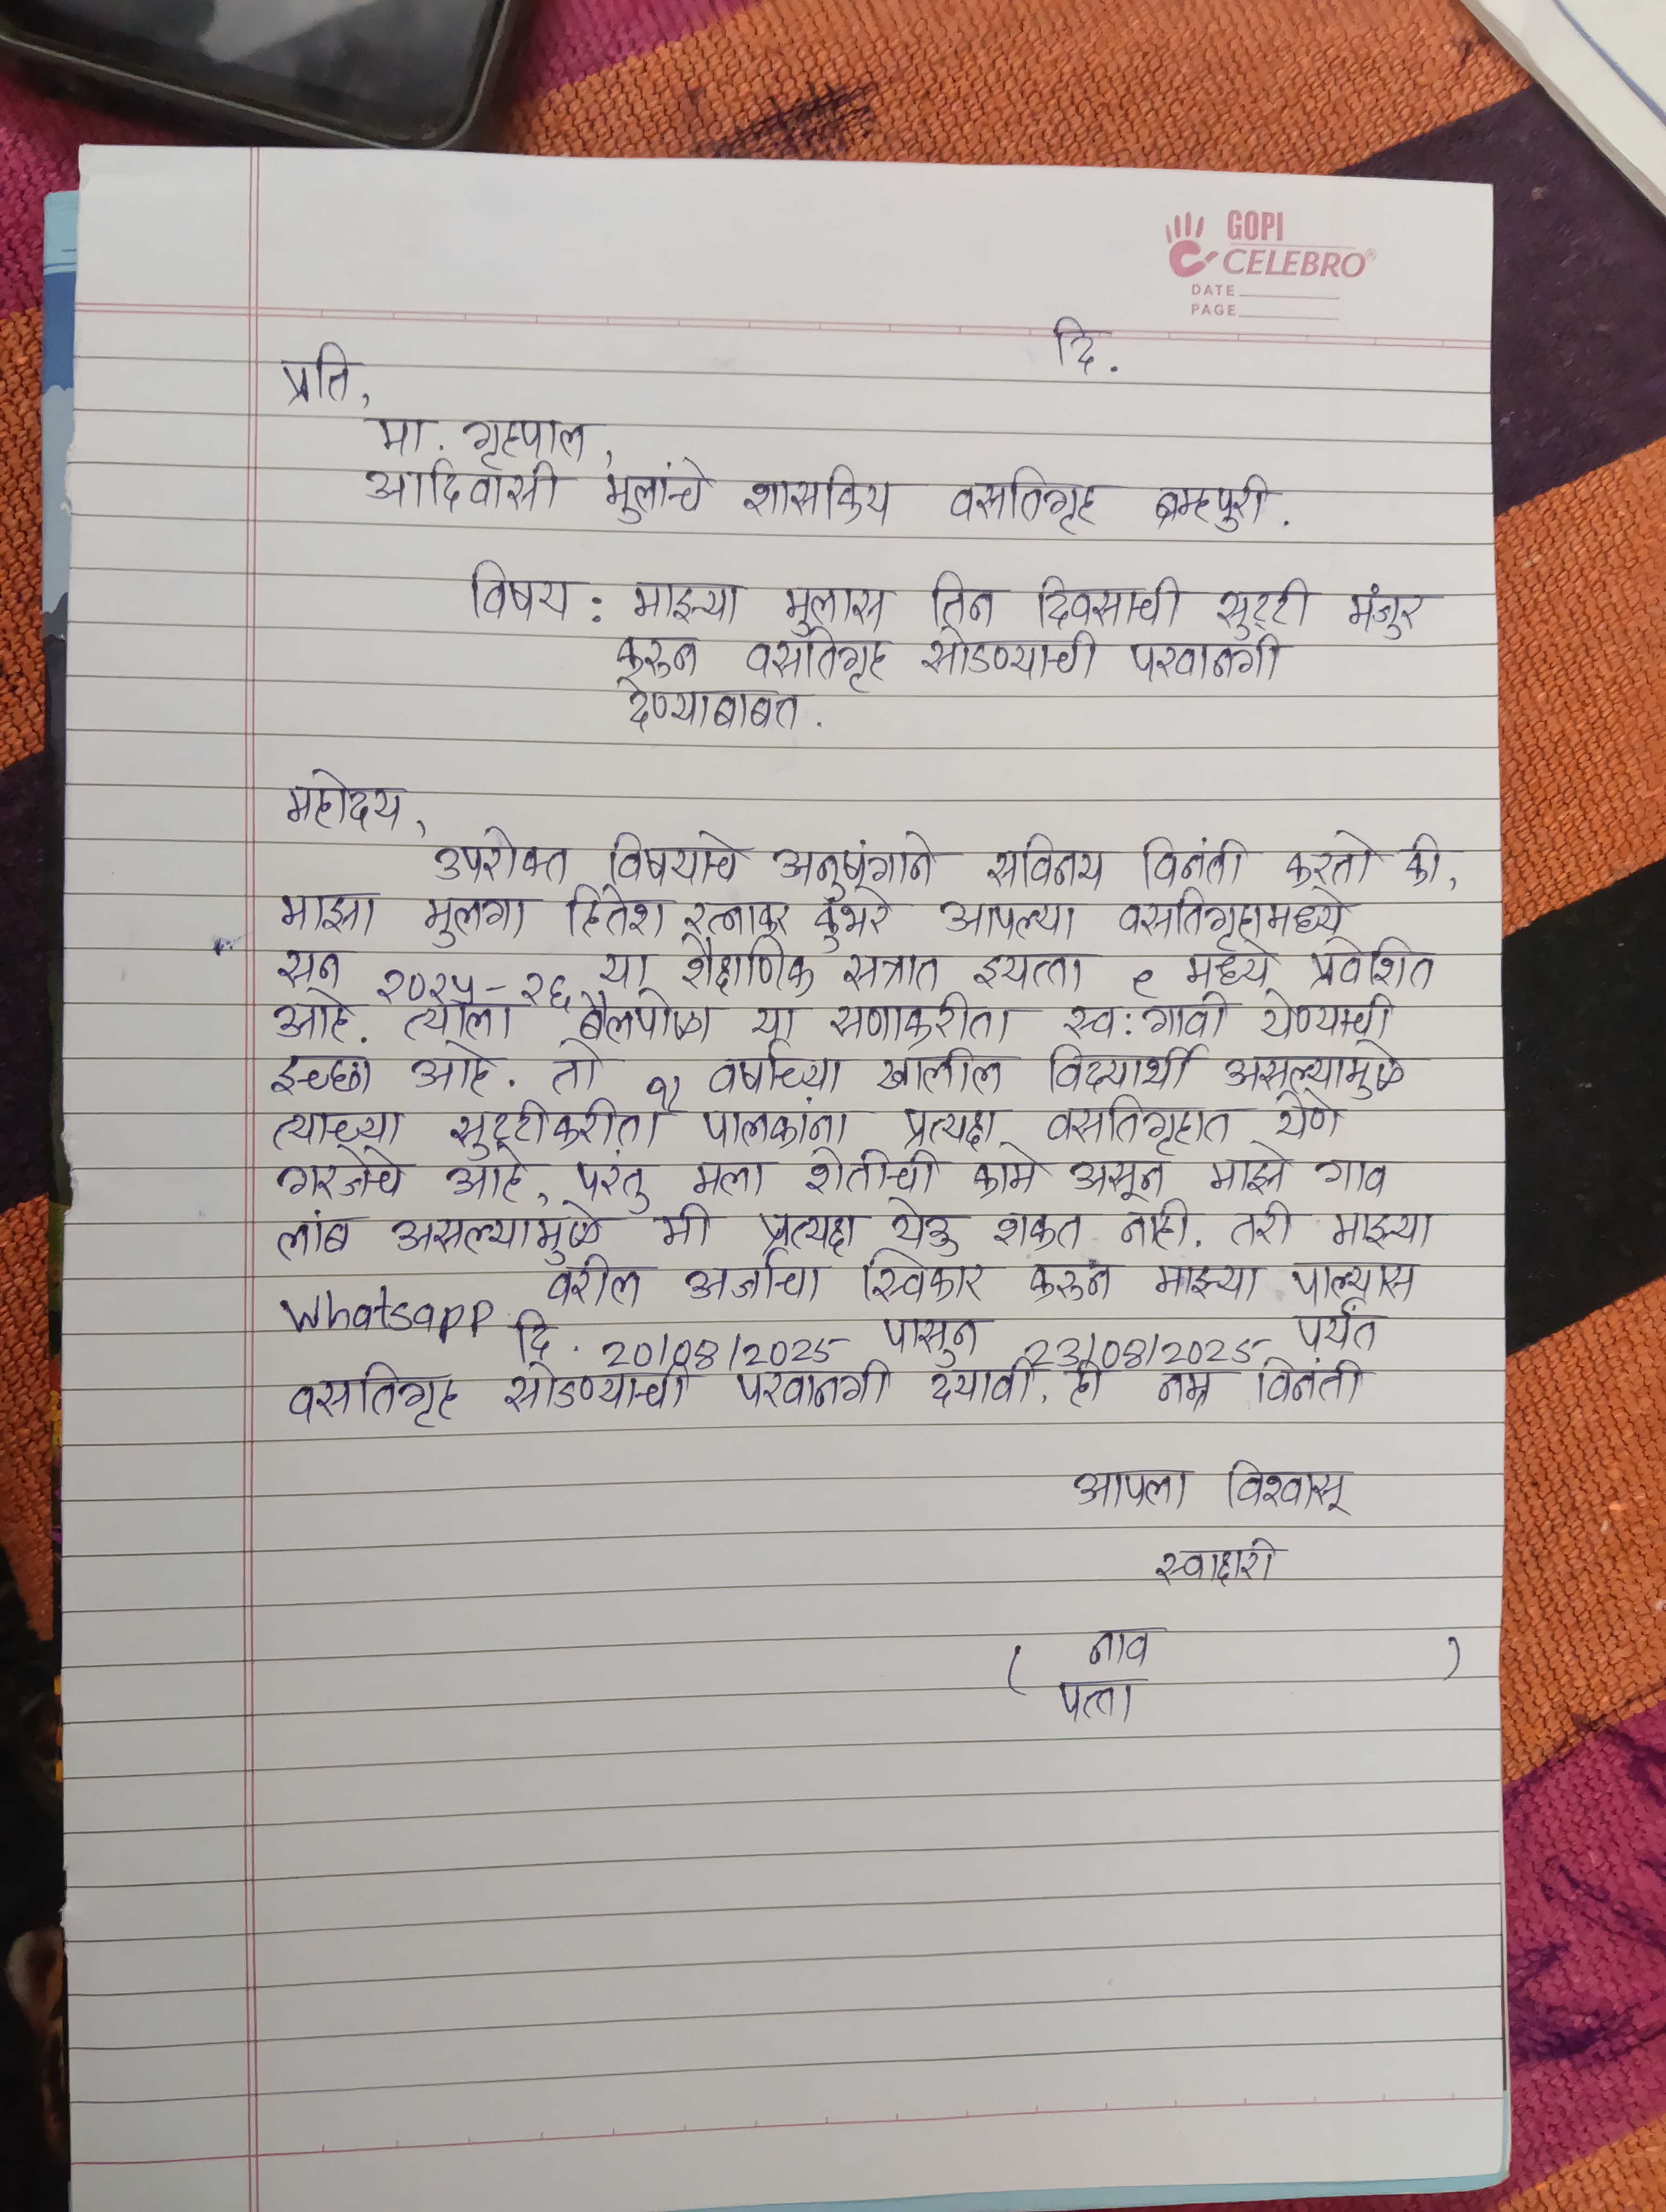 GOPI
CELEBRO®
DATE
PAGE
दि.
प्रति,
मा. गृहपाल,
आदिवासी मुलांचे शासकिय वसतिगृह ब्रम्हपुरी.
विषय : माझ्या मुलास तिन दिवसाची सुट्टी मंजुर
करुन वसतिगृह सोडण्याची परवानगी
देण्याबाबत.
महोदय,
उपरोक्त विषयाचे अनुषंगाने सविनय विनंती करतो की,
माझा मुलगा हितेश रत्नाकर कुंभरे आपल्या वसतिगृहामध्ये
सन २०२५-२६ या शैक्षाणिक सत्रात इयत्ता ९ मध्ये प्रवेशित
आहे. त्याला बैलपोळा या सणाकरीता स्व:गावी येण्याची
इच्छा आहे. तो वर्षाच्या खालील विद्यार्थी असल्यामुळे
त्याच्या सुट्टीकरीता पालकांना प्रत्यक्ष वसतिगृहात येणे
गरजेचे आहे, परंतु मला शेतीची कामे असून माझे गाव
लांब असल्यामुळे मी प्रत्यक्ष येऊ शकत नाही. तरी माझ्या
Whatsapp वरील अर्जाचा स्विकार करुन माझ्या पाल्यास
दि. 20/08/2025 पासुन 23/08/2025 पर्यंत
वसतिगृह सोडण्याची परवानगी द्यावी, ही नम्र विनंती
आपला विश्वासू
स्वाक्षरी
( नाव )
पत्ता